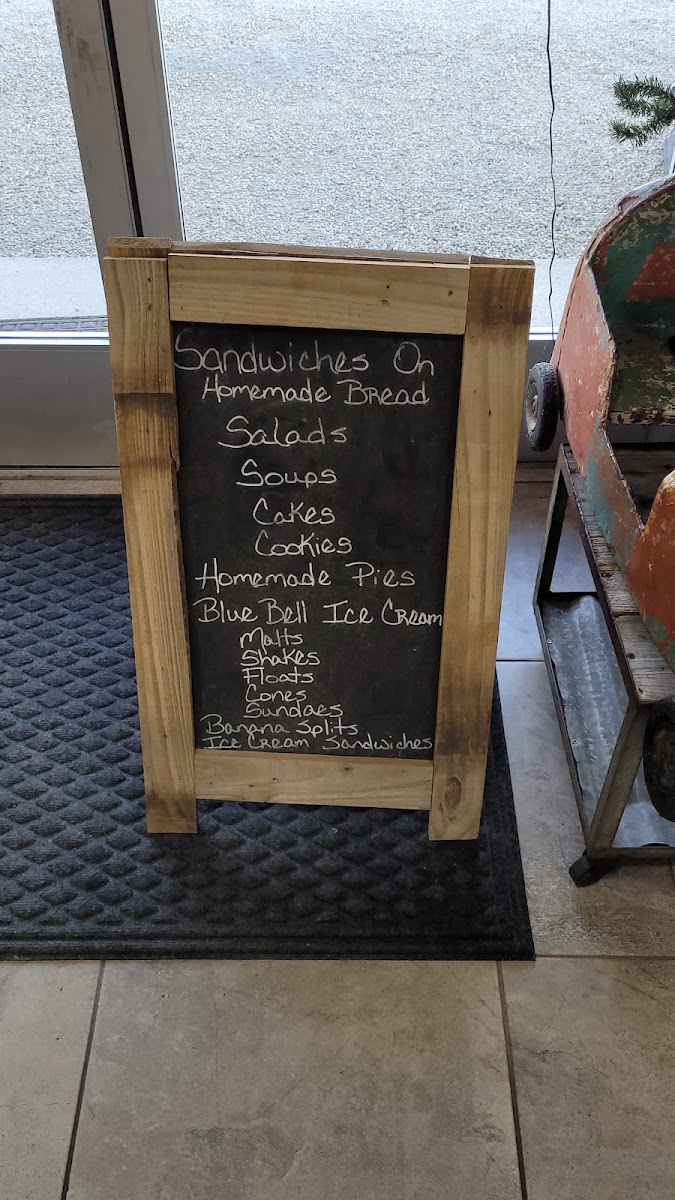 Sandwiches On
Homemade Bread
Salads
Soups
Cakes
Cookies
Homemade Pies
Blue Bell Ice Cream
Malts
Shakes
Floats
Cones
Sundaes
Banana Splits
Ice Cream Sandwiches